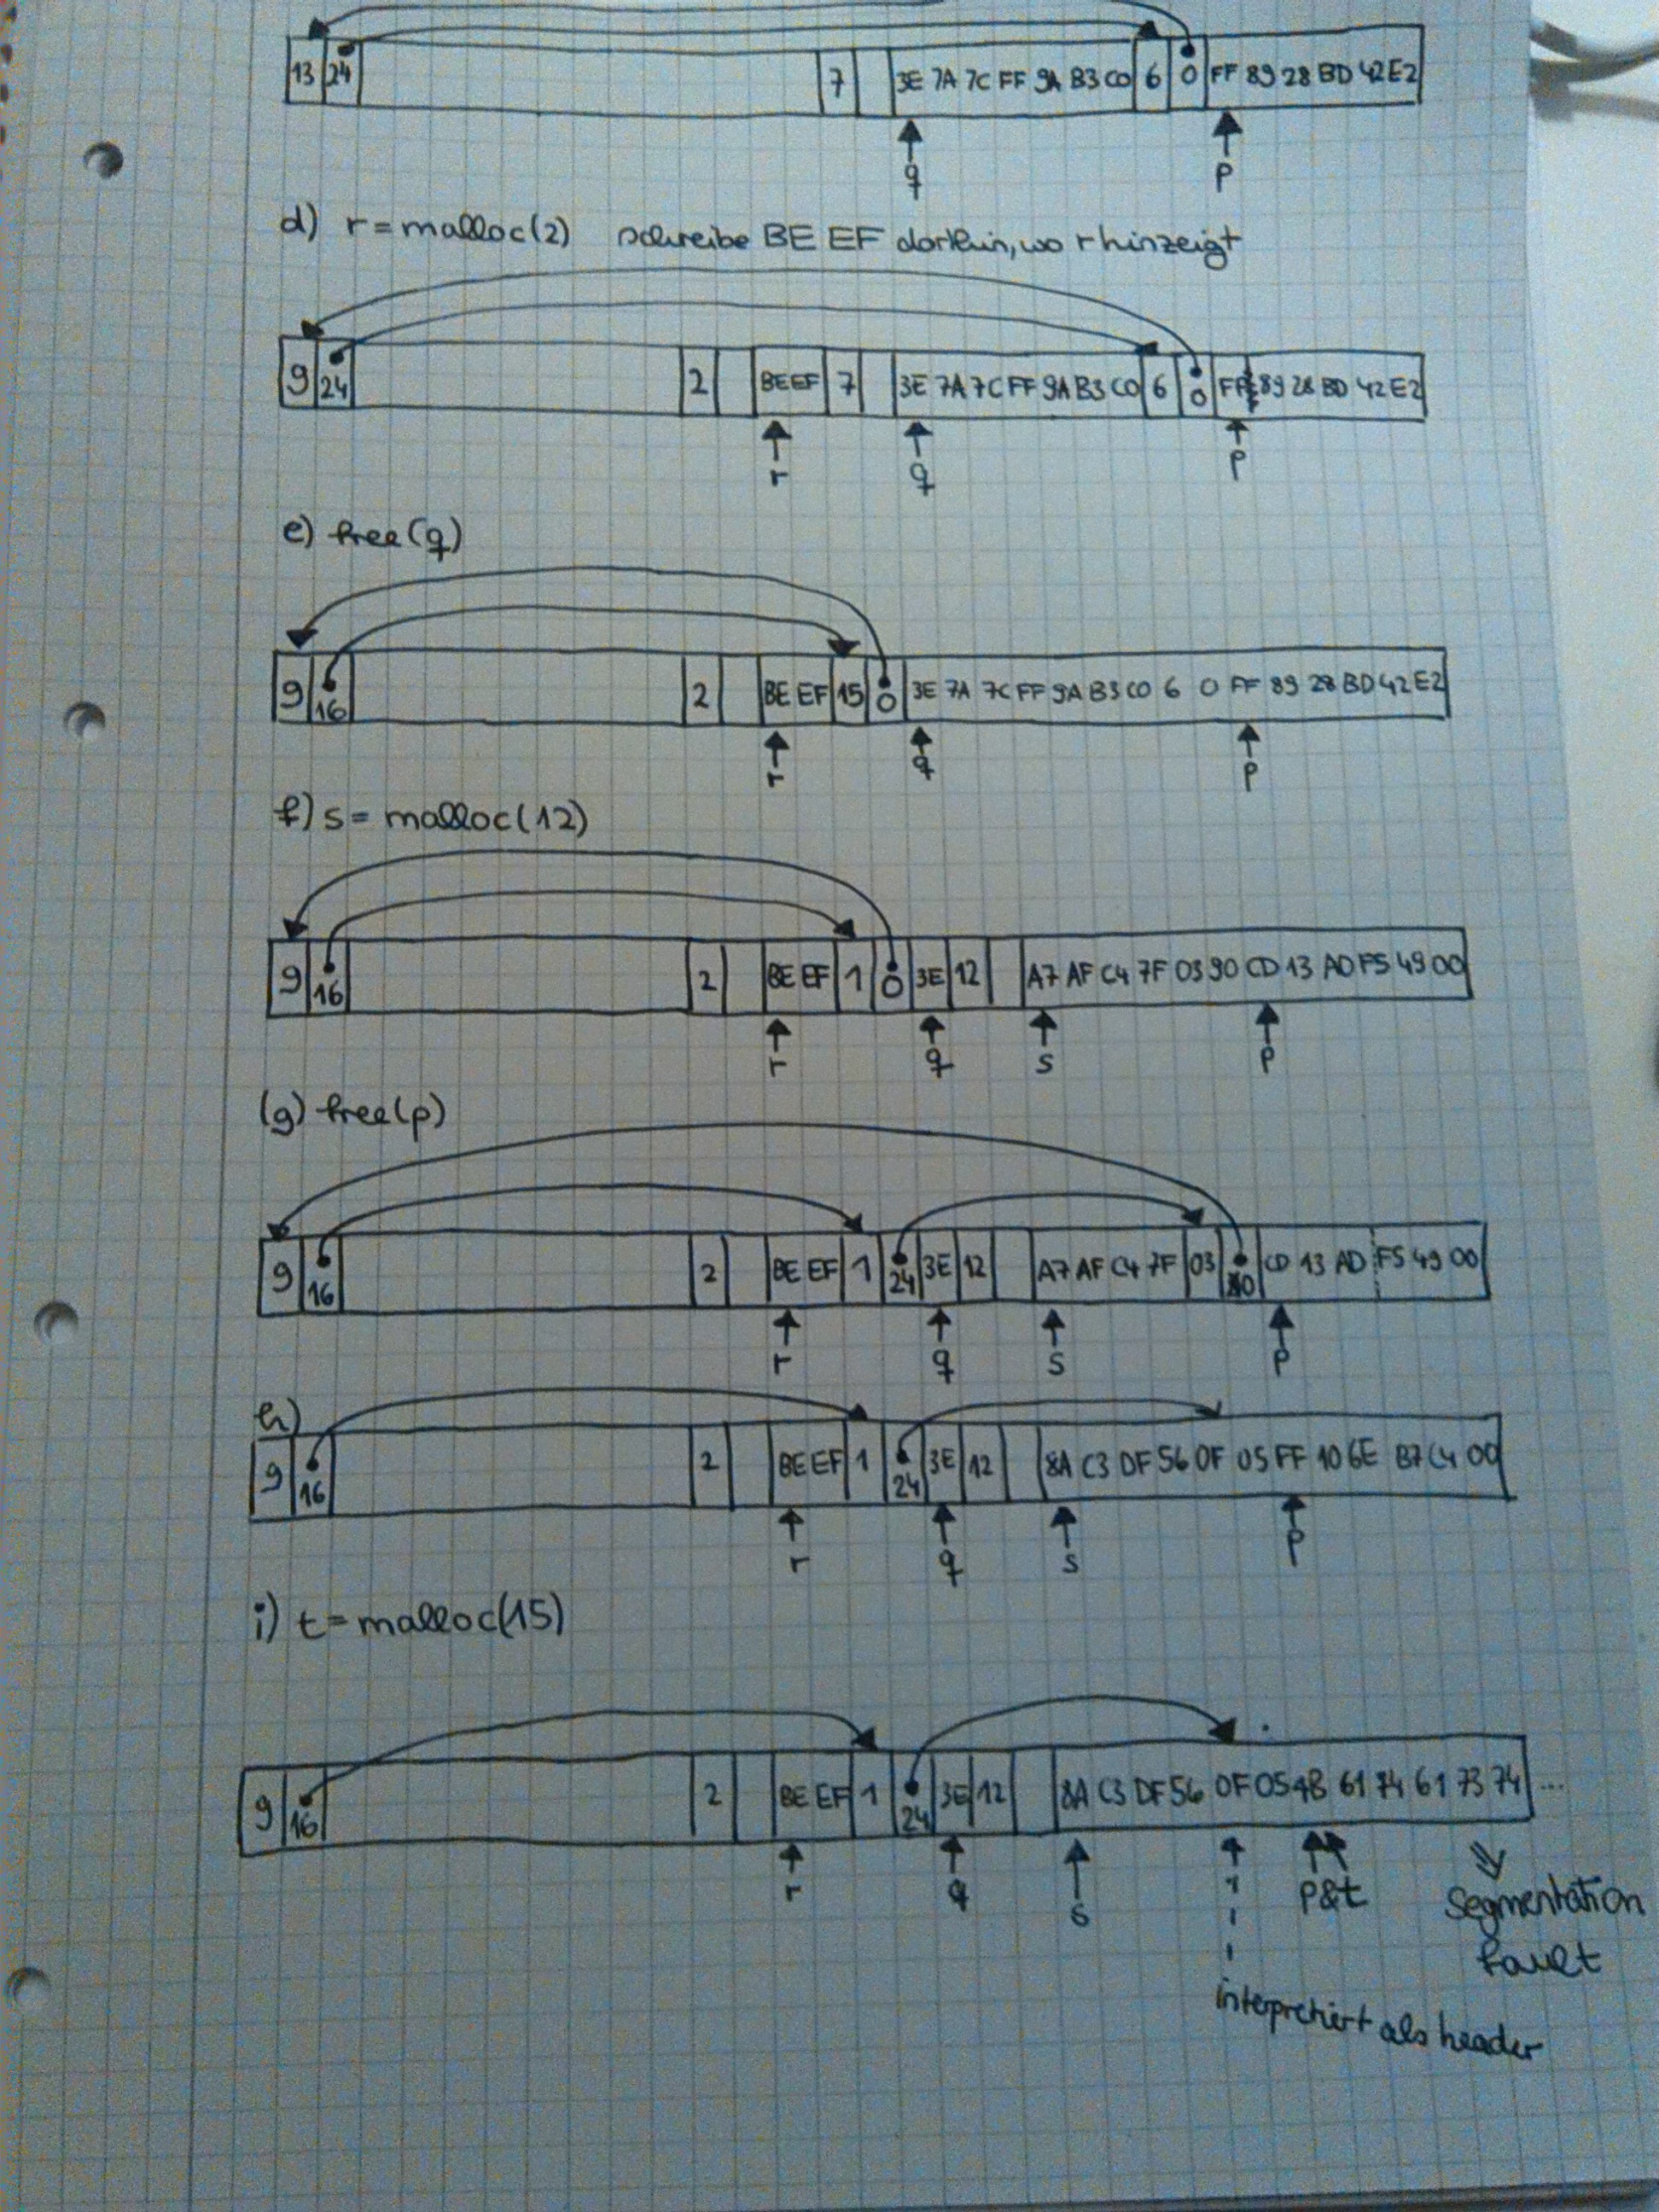 13 24 7 3E 7A 7C FF 9A B3 C0 6 0 FF 89 28 BD 42 E2
q p
d) r=malloc(2) schreibe BE EF dorthin, wo r hinzeigt
9 24 2 BE EF 7 3E 7A 7C FF 9A B3 C0 6 0 FF 89 28 BD 42 E2
r q p
e) free(q)
9 16 2 BE EF 15 0 3E 7A 7C FF 9A B3 C0 6 0 FF 89 28 BD 42 E2
r q p
f) s = malloc(12)
9 16 2 BE EF 1 0 3E 12 A7 AF C4 7F 03 90 CD 13 AD F5 49 00
r q s p
(g) free(p)
9 16 2 BE EF 1 24 3E 12 A7 AF C4 7F 03 0 CD 13 AD F5 49 00
r q s p
h)
9 16 2 BE EF 1 24 3E 12 8A C3 DF 56 0F 05 FF 10 6E B7 C4 00
r q s p
i) t=malloc(15)
9 16 2 BE EF 1 24 3E 12 8A C3 DF 56 0F 05 4B 61 74 61 73 74 ...
r q s p&t
Segmentation
fault
interpretiert als header